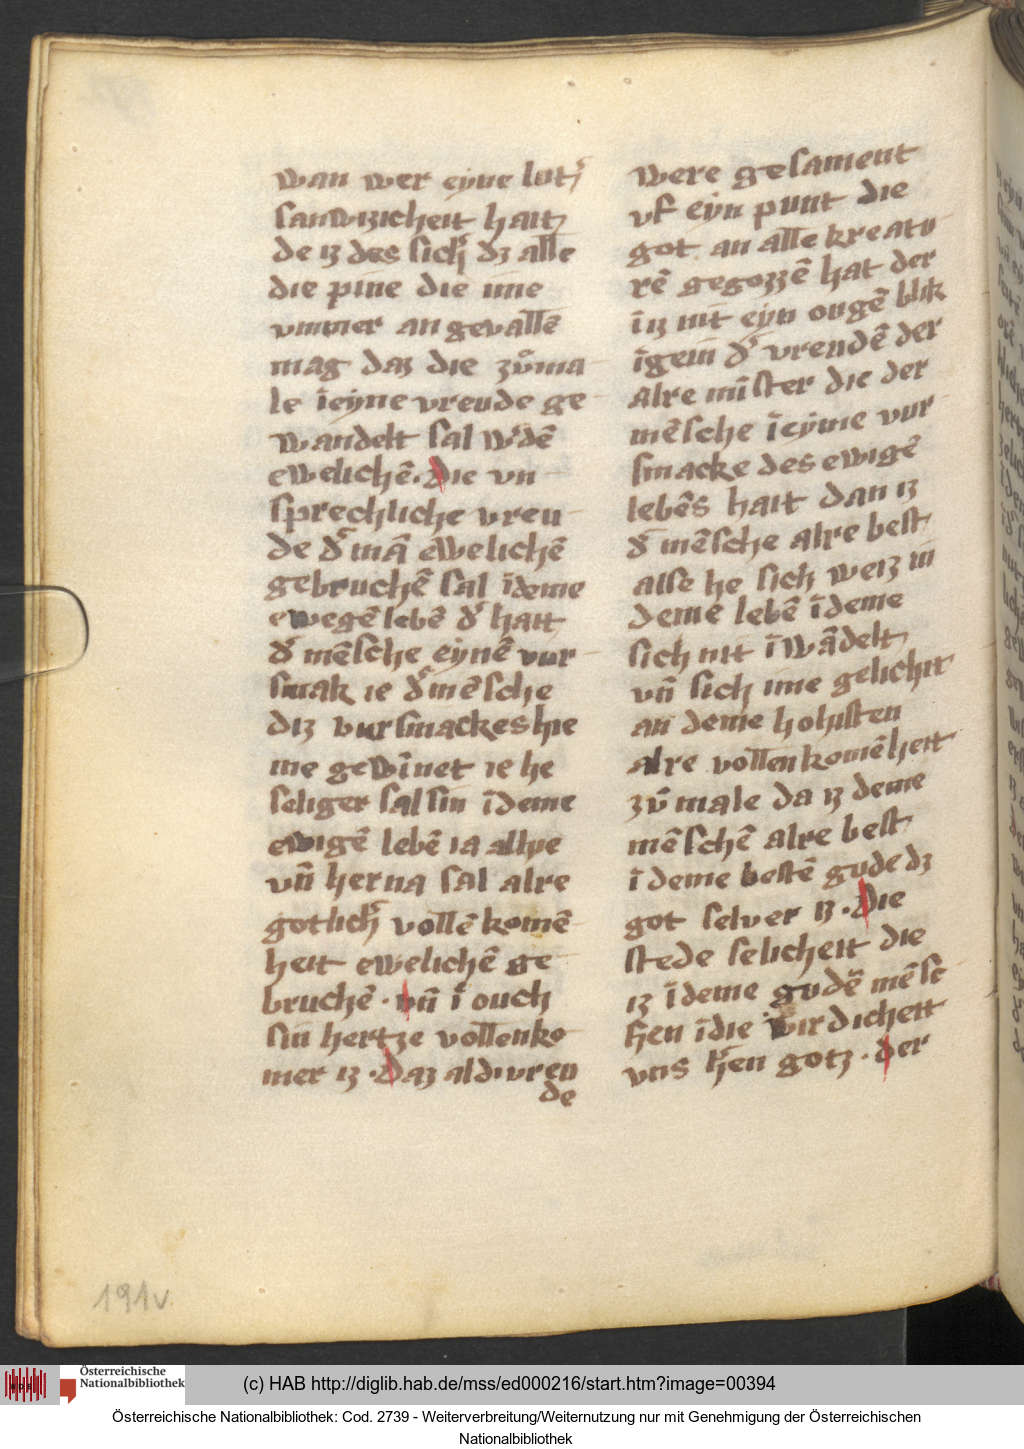 wan wer eyne lut᷑
sanwizicheit hait
de iz des sich᷑ dz alle
die pine die ime
vmmer an gevallē
mag daz die zůma
le ieyne vreude ge
wandelt sal w᷑dē
ewelichē. Die vn
sprechliche vreu
de d᷑ mā ewelichē
gebruchē sal īdeme
ewegē lebē d᷑ hait
d᷑ mēsche eynē vur
smak ie d᷑ mēsche
diz vursmackes hie
me gewīnet ie he
seliger sal sin īdeme
ewigē lebē ia allhie
vn̄ herna sal alre
gotlich᷑ vollēkomē
heit ewelichē ge
bruchē · vn̄ ī ouch
sin hertze vollenko
mer iz · Daz aldi vreu
de
were gesament
vf eyn punt die
got an alle kreatu
rē gegozzē hat der
iz nit eyn ougē blik
īgein d᷑ vreudē der
alre mīster die der
mēsche īeyme vur
smacke des ewigē
lebēs hait dan iz
d᷑ mēsche alre best
alse he sich weiz in
deme lebē īdeme
sich nit īwādelt
vn̄ sich ime gelichit
an deme hohisten
alre vollenkomēheit
zů male da iz deme
mēschē alre best
ī deme bestē gude dz
got selver iz · Die
stede selicheit die
iz īdeme gudē mēsc
hen īdie wirdicheit
vns h᷑en gotz · der
191v.
(c) HAB http://diglib.hab.de/mss/ed000216/start.htm?image=00394
Österreichische
Nationalbibliothek
Österreichische Nationalbibliothek: Cod. 2739 - Weiterverbreitung/Weiternutzung nur mit Genehmigung der Österreichischen
Nationalbibliothek